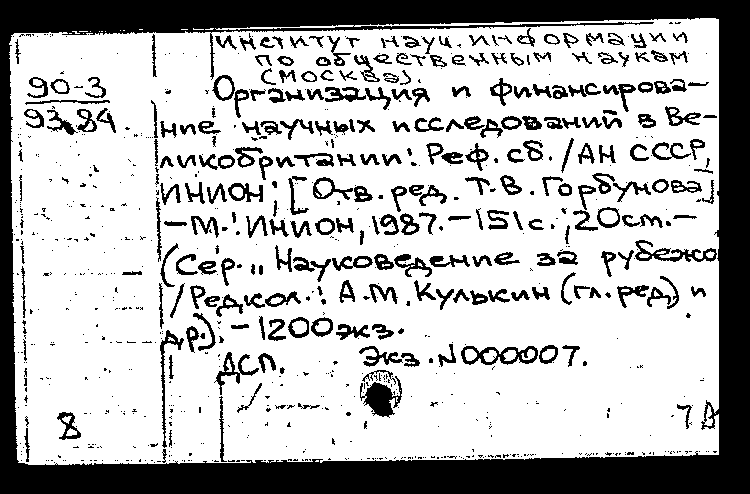 Институт науч. информации
по общественным наукам
(Москва).
90-3
93.84
Организация и финансирова-
ние научных исследований в Ве-
ликобритании: Реф. сб. / АН СССР,
ИНИОН; [Отв. ред. Т.В. Горбунова].
– М.: ИНИОН, 1987. – 151 с.; 20 см. –
(Сер. „Науковедение за рубежо
/ Редкол.: А.М. Кулькин (гл. ред.) и
др.). – 1200 экз.
ДСП. Экз. N 000007.
8